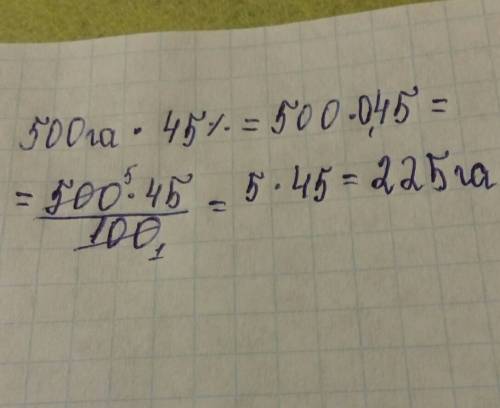 500га · 45% = 500 · 0,45 =
= 500⁵ · 45 / 100₁ = 5 · 45 = 225га